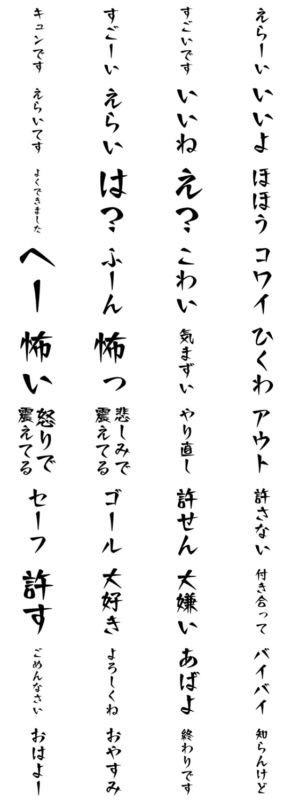 キュンです
すごーい
すごいです
えらーい
えらいてす
えらい
いいね
いいよ
よくできました
は?
え?
ほほう
へー
ふーん
こわい
コワイ
怖い
怖っ
気まずい
ひくわ
怒りで
震えてる
悲しみで
震えてる
やり直し
アウト
セーフ
ゴール
許せん
許さない
許す
大好き
大嫌い
付き合って
ごめんなさい
よろしくね
あばよ
バイバイ
おはよー
おやすみ
終わりです
知らんけど